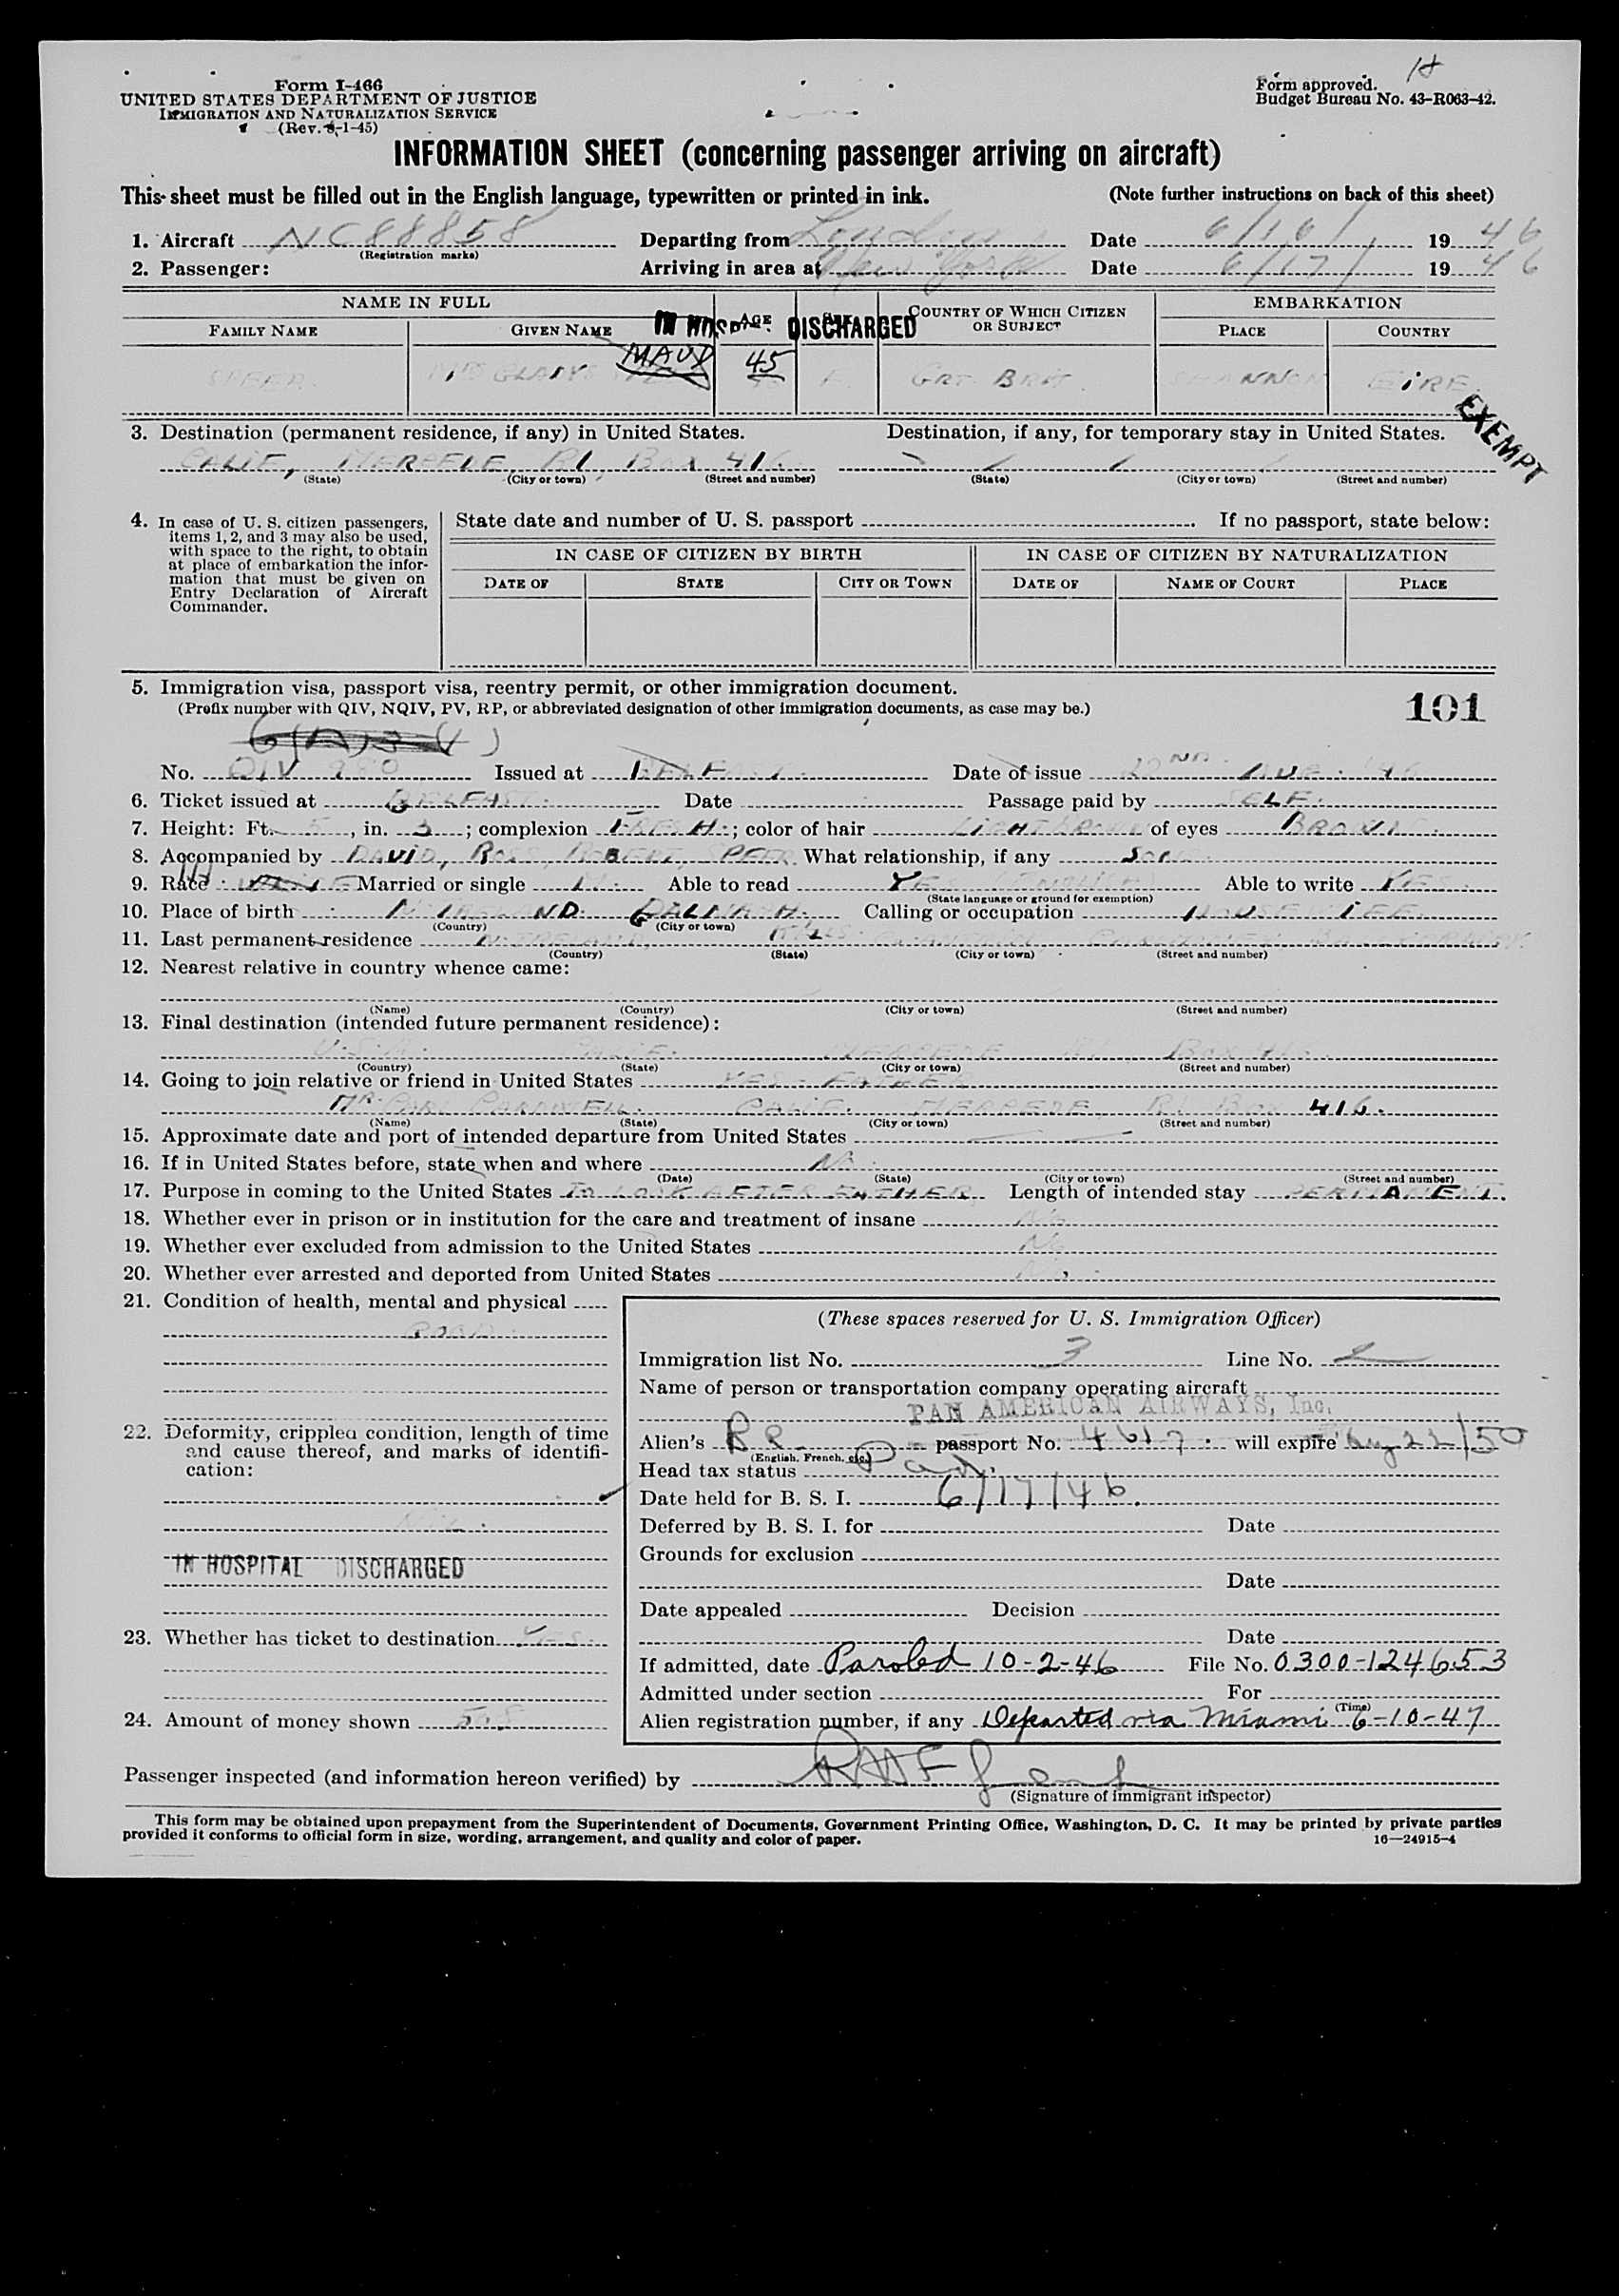 Form I-466
UNITED STATES DEPARTMENT OF JUSTICE
IMMIGRATION AND NATURALIZATION SERVICE
(Rev. -1-45)
Form approved.
Budget Bureau No. 43-R063-42.
INFORMATION SHEET (concerning passenger arriving on aircraft)
This sheet must be filled out in the English language, typewritten or printed in ink. (Note further instructions on back of this sheet)
1. Aircraft NC88858 Departing from London Date 6/16/ 1946
(Registration marks)
2. Passenger: Arriving in area at New York Date 6/17/ 1946
NAME IN FULL AGE COUNTRY OF WHICH CITIZEN OR SUBJECT EMBARKATION
FAMILY NAME GIVEN NAME PLACE COUNTRY
DISCHARGED
SPEER GLADYS MAUD 45 F. GRT BRIT. SHANNON EIRE
EXEMPT
3. Destination (permanent residence, if any) in United States. Destination, if any, for temporary stay in United States.
CALIF, MERCEDE R1 BOX 416
(State) (City or town) (Street and number) (State) (City or town) (Street and number)
4. In case of U. S. citizen passengers, items 1, 2, and 3 may also be used, with space to the right, to obtain at place of embarkation the information that must be given on Entry Declaration of Aircraft Commander.
State date and number of U. S. passport . If no passport, state below:
IN CASE OF CITIZEN BY BIRTH IN CASE OF CITIZEN BY NATURALIZATION
DATE OF STATE CITY OR TOWN DATE OF NAME OF COURT PLACE
5. Immigration visa, passport visa, reentry permit, or other immigration document.
(Prefix number with QIV, NQIV, PV, RP, or abbreviated designation of other immigration documents, as case may be.)
101
6(A)3( )
No. QIV 980 Issued at BELFAST Date of issue 22ND AUG. '46
6. Ticket issued at BELFAST. Date Passage paid by SELF.
7. Height: Ft. 5, in. 3; complexion FRESH; color of hair LIGHT BROWN of eyes BROWN.
8. Accompanied by DAVID, ROSS, ROBERT, SPEER What relationship, if any SON
9. Race Married or single M. Able to read YES (ENGLISH) Able to write YES
(State language or ground for exemption)
10. Place of birth N. IRELAND. Calling or occupation HOUSEWIFE
(Country) (City or town)
11. Last permanent residence N. IRELAND,
(Country) (State) (City or town) (Street and number)
12. Nearest relative in country whence came:
(Name) (Country) (City or town) (Street and number)
13. Final destination (intended future permanent residence):
U.S.A. CALIF. MERCEDE R1 BOX 416
(Country) (State) (City or town) (Street and number)
14. Going to join relative or friend in United States YES - FATHER
MR CALIF. MERCEDE, R1 BOX 416.
(Name) (State) (City or town) (Street and number)
15. Approximate date and port of intended departure from United States
16. If in United States before, state when and where NO
(Date) (State) (City or town) (Street and number)
17. Purpose in coming to the United States TO LOOK AFTER FATHER Length of intended stay PERMANENT.
18. Whether ever in prison or in institution for the care and treatment of insane No
19. Whether ever excluded from admission to the United States No
20. Whether ever arrested and deported from United States No.
21. Condition of health, mental and physical
GOOD
(These spaces reserved for U. S. Immigration Officer)
Immigration list No. 3 Line No. 2
Name of person or transportation company operating aircraft
PAN AMERICAN AIRWAYS, Inc.
22. Deformity, crippled condition, length of time and cause thereof, and marks of identification:
NIL.
IN HOSPITAL DISCHARGED
Alien's BR. passport No. 4617 will expire Aug 22/50
(English, French, etc.)
Head tax status Pad.
Date held for B. S. I. 6/17/46.
Deferred by B. S. I. for Date
Grounds for exclusion
Date
Date appealed Decision
23. Whether has ticket to destination YES.
Date
If admitted, date Paroled 10-2-46 File No. 0300-124653
Admitted under section For
(Time)
24. Amount of money shown
Alien registration number, if any Departed via Miami 6-10-47
Passenger inspected (and information hereon verified) by
(Signature of immigrant inspector)
This form may be obtained upon prepayment from the Superintendent of Documents, Government Printing Office, Washington, D. C. It may be printed by private parties
provided it conforms to official form in size, wording, arrangement, and quality and color of paper. 16—24915-4